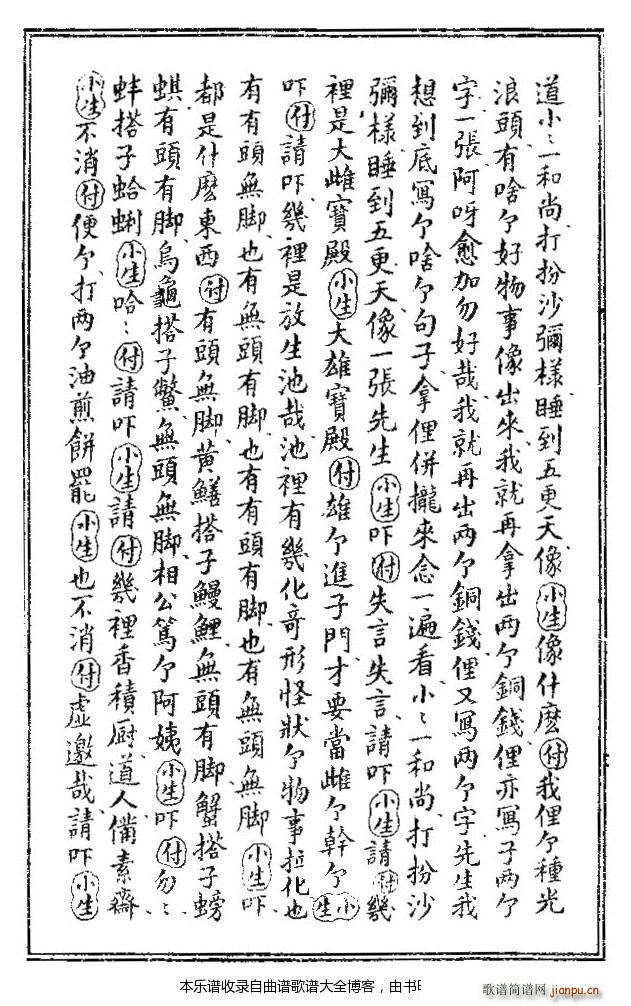 道小〻一和尚打扮沙彌樣睡到五更天像小生像什麽付我俚个種光
浪頭有啥个好物事像出來我就再拿出两个銅錢俚亦寫子两个
字一張阿呀愈加勿好哉我就再出两个銅錢俚又寫两个字先生我
想到底寫个啥个句子拿俚併攏來念一遍看小〻一和尚打扮沙
彌樣睡到五更天像一張先生小生吓付失言失言請吓小生請付幾
裡是大雌寶殿小生大雄寶殿付雄个進子門才要當雌个幹个小生
吓付請吓幾裡是放生池哉池裡有幾化奇形怪狀个物事拉化也
有有頭無脚也有無頭有脚也有有頭有脚也有無頭無脚小生吓
都是什麽東西付有頭無脚黄鱔搭子鰻鯉無頭有脚蟹搭子螃
蜞有頭有脚烏龜搭子鱉無頭無脚相公篤个阿姨小生吓付勿〻
蚌搭子蛤蜊小生哈〻付請吓小生請付幾裡香積厨道人備素齋
小生不消付便个打两个油煎餅罷小生也不消付虚邀哉請吓小生
本乐谱收录自曲谱歌谱大全博客，由书
歌谱简谱网
jianpu.cn